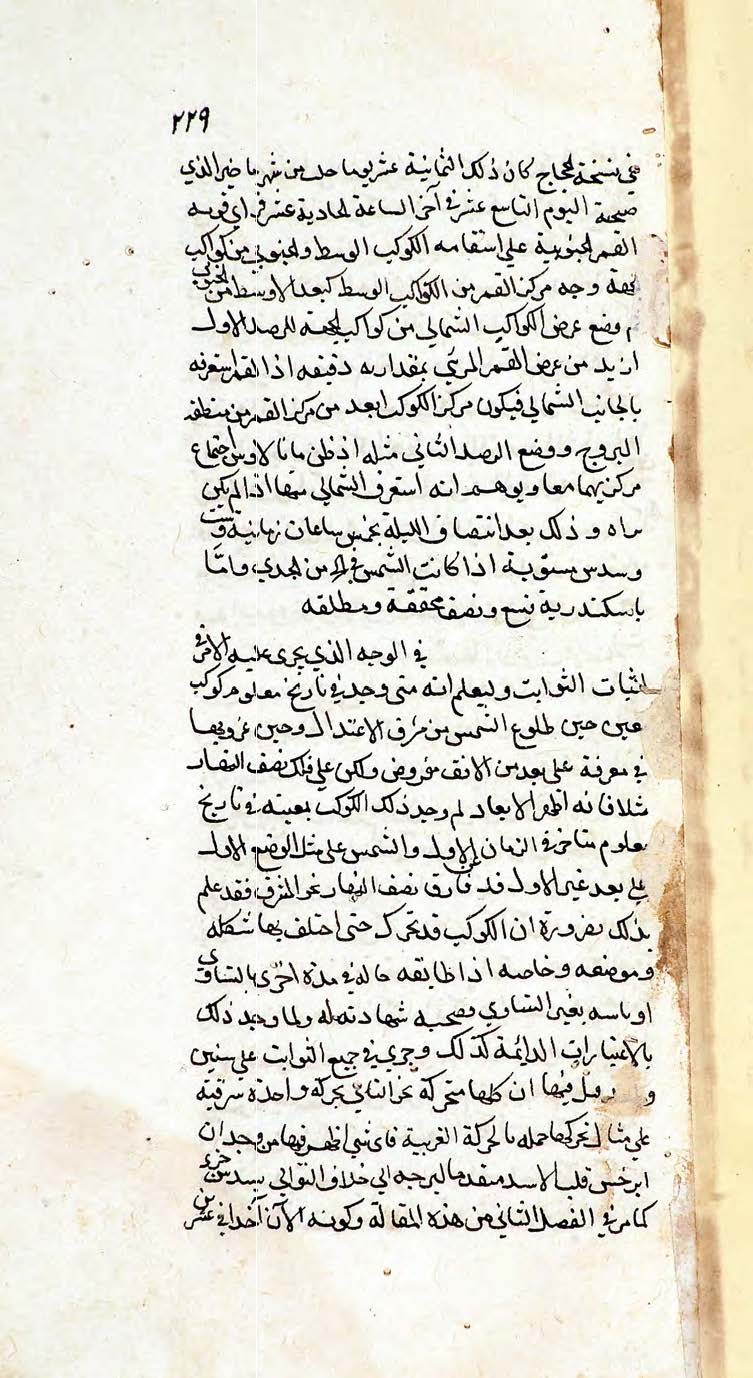 ٢٢٩
في نسخة الحجاج كان ذلك الثمانية عشر يوما من شهر ماخير الذي
صبيحة اليوم التاسع عشر في آخر الساعة الحادية عشر فرأى قرنه
القمر الجنوبية على استقامه الكوكب الوسط والجنوبي من كواكب
الجبهة وجه مركز القمر من الكواكب الوسط كبعد الاوسط من الجنوبي
وضع عرض الكواكب الشمالي من كواكب الجبهة للرصد الاول
ازيد من عرض القمر المرئي بمقدار دقيقه اذا القمر استغرقه
بالجانب الشمالي فيكون مركز الكوكب ابعد من مركز القمر من منطقة
البروج ووضع الرصد الثاني مثله اذ ظن مانالاوس اجتماع
مركزيهما معا وبوهم انه استغرق الشمالي منها اذا لم يكن
يراه وذلك بعد انتصاف الليلة بخمس ساعات زمانية وست
وسدس مستوية اذا كانت الشمس في من الجدي واما
باسكندرية تسع ونصف محققة ومطلقه
في الوجه الذي يجري عليه الامر في
اثبات الثوابت وليعلم انه متى وجد في تاريخ معلوم كوكب
معين حين طلوع الشمس من مشرق الاعتدال وحين غروبها
في معرفة على بعد من الافق مفروض ولكن على فلك نصف النهار
مثلا فانه اظهر الابعاد لم وجد ذلك الكوكب بعينه في تاريخ
معلوم متاخر في الزمان عن الاول والشمس على مثل الوضع الاول
على بعد غير الاول قد فارق نصف النهار نحو المشرق فقد علم
بذلك بضرورة ان الكوكب قد تحرك حتى اختلف بها شكله
وموضعه وخاصه اذا طابقه حاله في مدة اخرى بالتساوي
او ناسبه بغير التساوي وصحبه شهادته له ولما وجد ذلك
بالاعتبارات الدائمة كذلك وجري في جميع الثوابت على سنين
و فيها ان كلها متحركة نحو التالي بحركة واحدة شرقية
على مثال تحركها حمله بالحركة الغربية فاي شي اظهر فيها من وجدان
ابرخس قلب الاسد متقدما لبرجه الى خلاف التوالي بسدس جزء
كما مر في الفصل الثاني من هذه المقالة وكونه الآن آخذا في عشرين